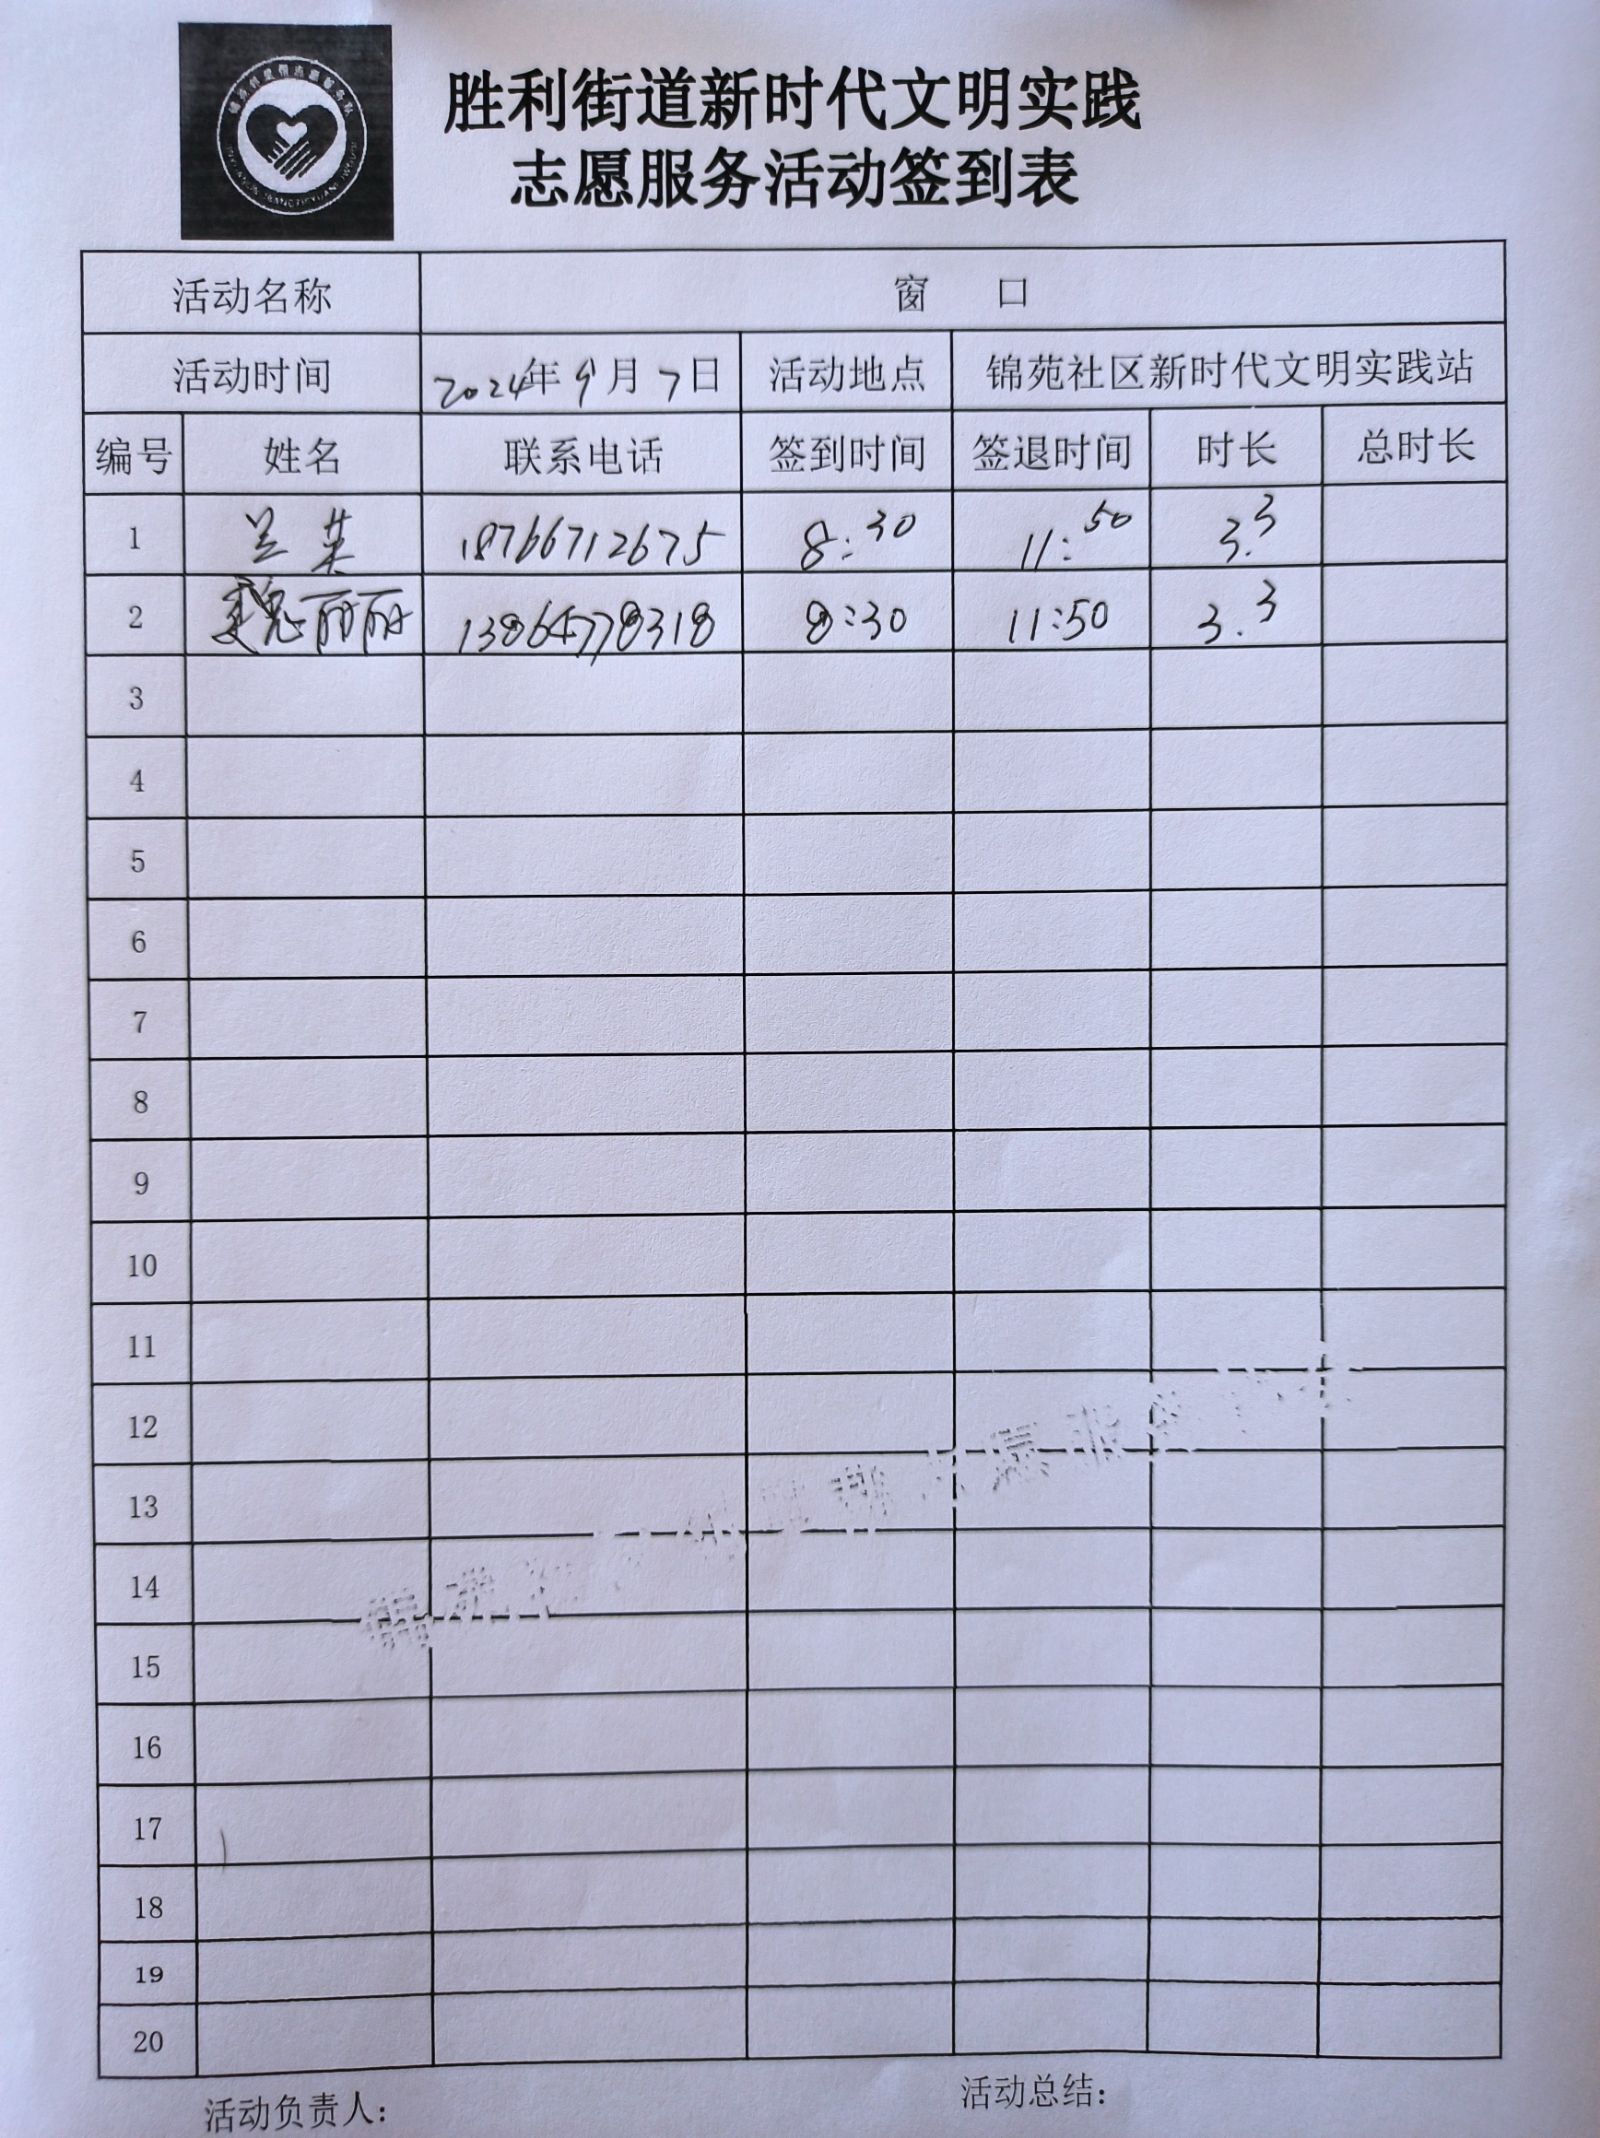 胜利街道新时代文明实践
志愿服务活动签到表
活动名称 窗 口
活动时间 2024年9月7日 活动地点 锦苑社区新时代文明实践站
编号 姓名 联系电话 签到时间 签退时间 时长 总时长
1 兰英 18766712675 8:30 11:50 3.3
2 魏丽丽 13864778318 8:30 11:50 3.3
3
4
5
6
7
8
9
10
11
12
13
14
15
16
17
18
19
20
活动负责人: 活动总结: